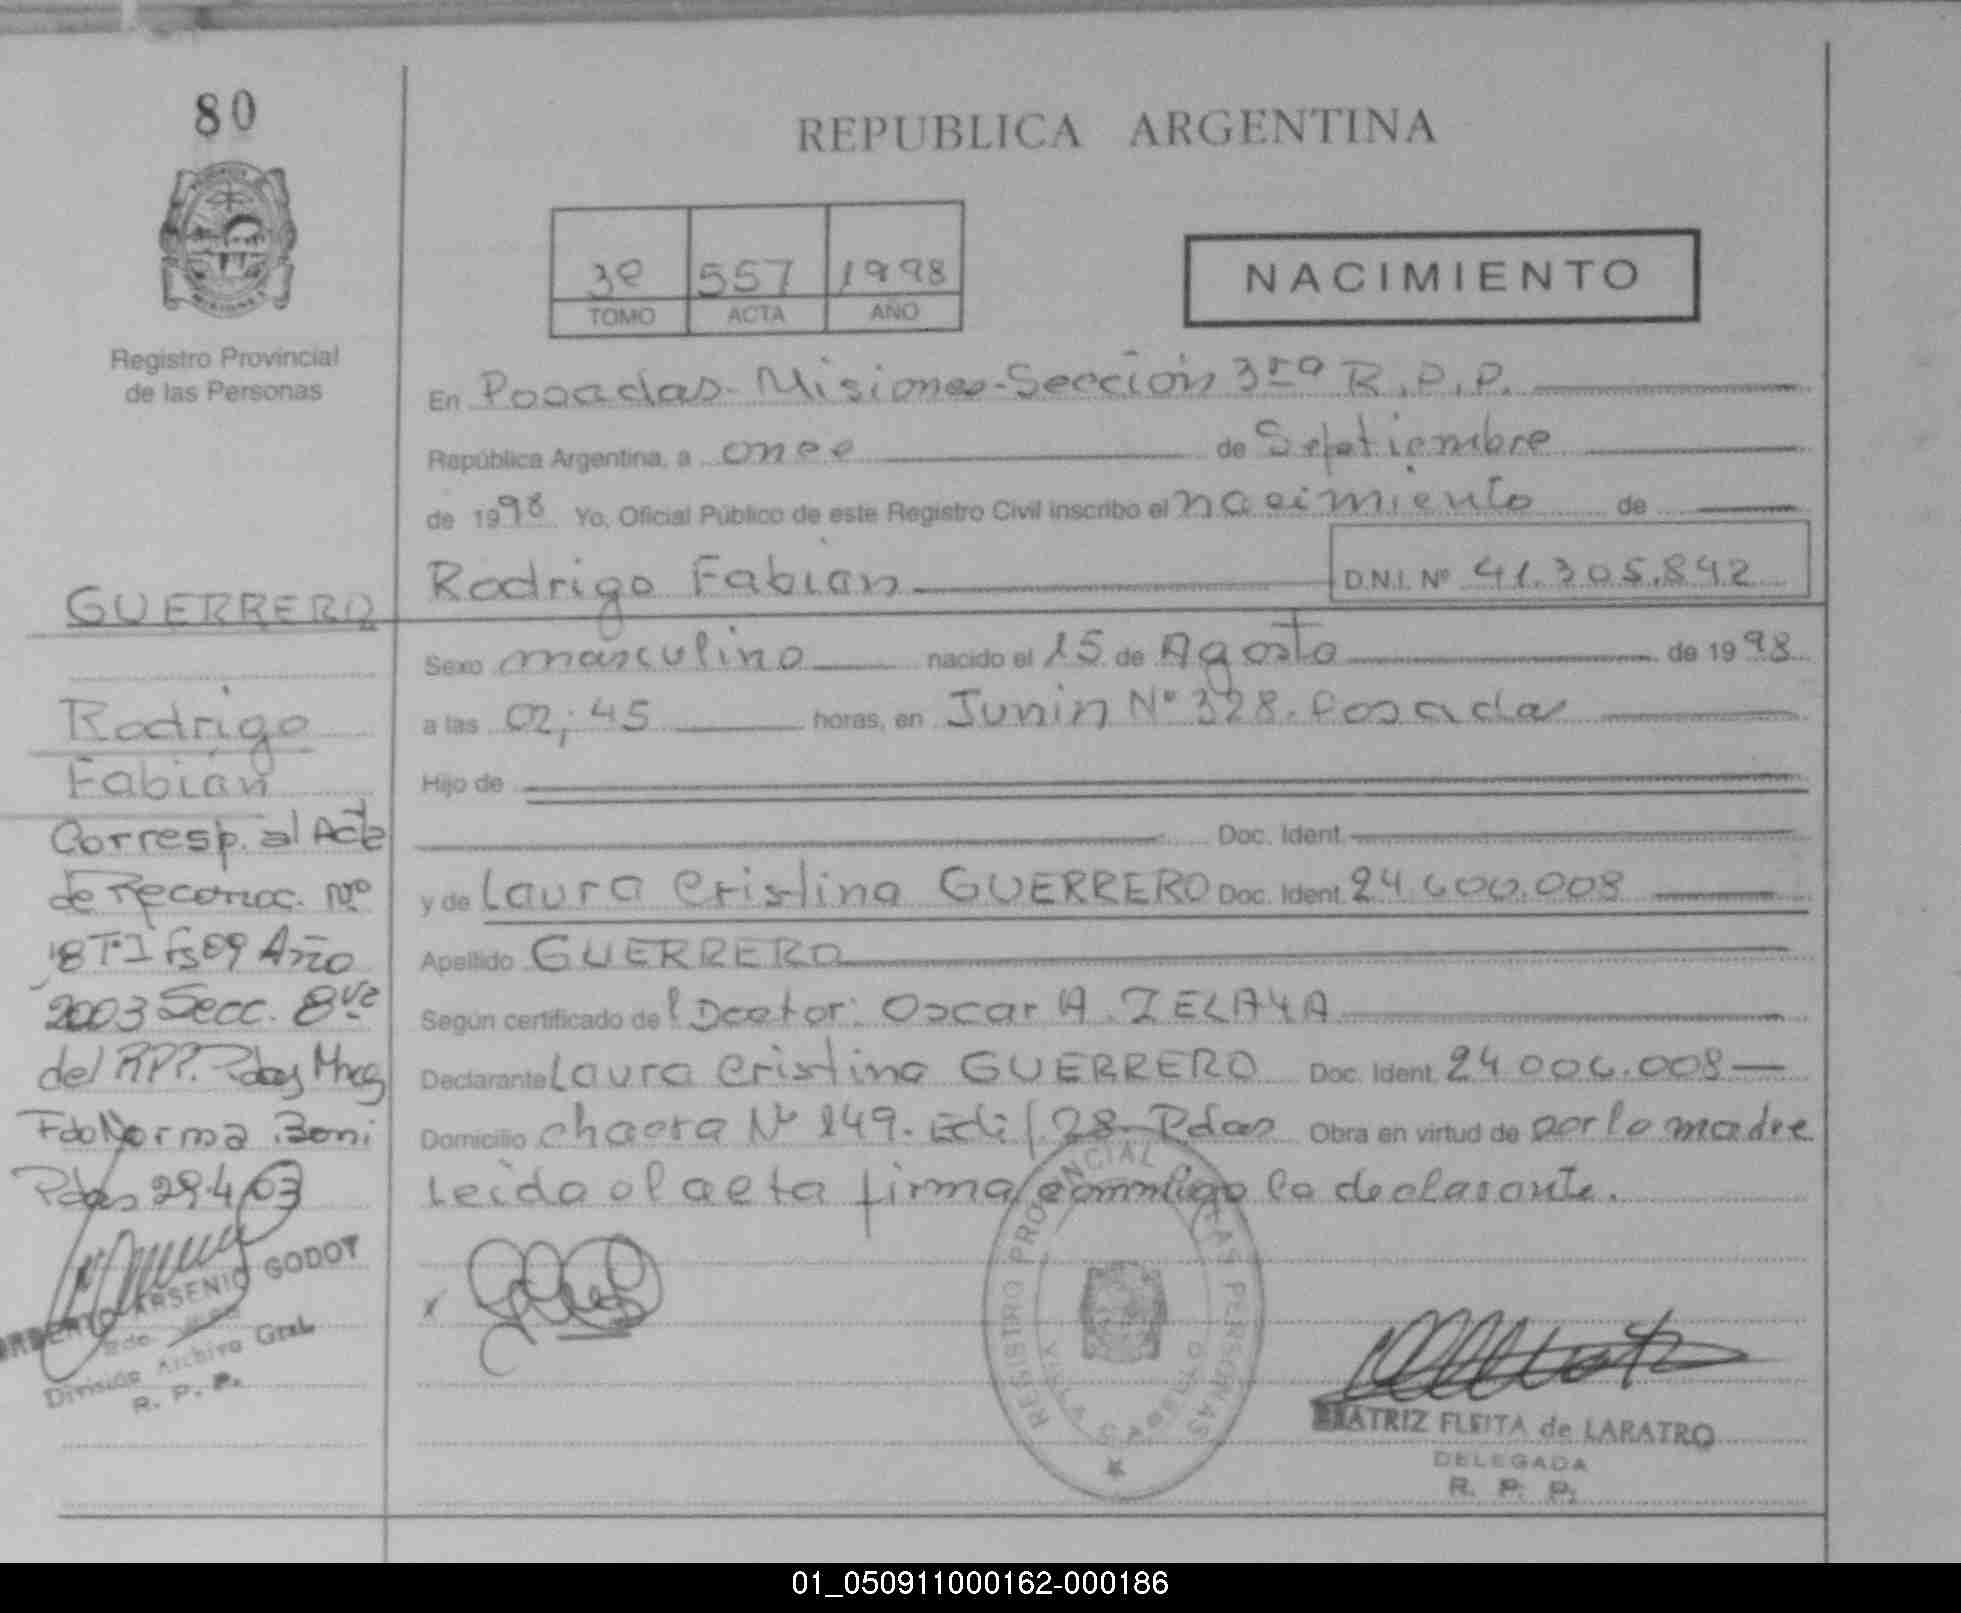 80
REPUBLICA ARGENTINA
3º 557 1998
TOMO ACTA AÑO
NACIMIENTO
Registro Provincial
de las Personas
En Posadas - Misiones - Sección 3ra R.P.P.
República Argentina, a once de Septiembre
de 1998 Yo, Oficial Público de este Registro Civil inscribo el nacimiento de
Rodrigo Fabian D.N.I. Nº 41.305.842
Sexo masculino nacido el 15 de Agosto de 1998
a las 02;45 horas, en Junin Nº 328. Posadas
Hijo de
Doc. Ident.
y de Laura Cristina GUERRERO Doc. Ident. 24.600.008
Apellido GUERRERO
Según certificado del Doctor: Oscar A. ZELAYA
Declarante Laura Cristina GUERRERO Doc. Ident. 24.006.008
Domicilio chacra Nº 149. Edi/. 28 - Pdas Obra en virtud de ser la madre
Leida el acta firma conmigo la declarante.
GUERRERO
Rodrigo
Fabián
Corresp. al Acta
de Reconoc. Nº
18 T.I Fs 09 Año
2003 Secc. 8va
del RPP. Pdas Mnes
Fdo Norma Boni
Pdas 29.4.03
ARSENIO GODOY
División Archivo Gral
R. P. P.
REGISTRO PROVINCIAL DE LAS PERSONAS
BEATRIZ FLEITA de LARATRO
DELEGADA
R. P. P.
01_050911000162-000186